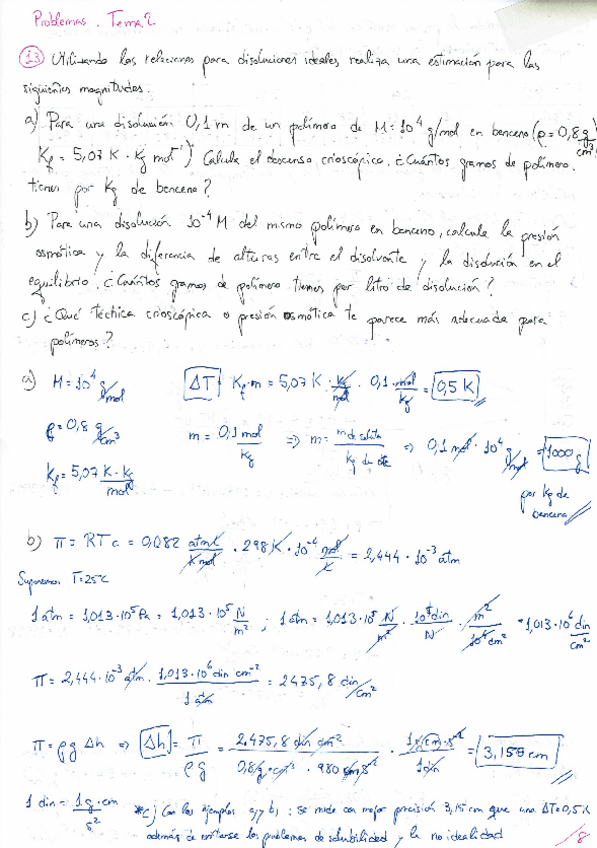 Problemas. Tema 2.
13 Utilizando las relaciones para disoluciones ideales realiza una estimación para las
siguientes magnitudes.
a) Para una disolución 0,1 m de un polímero de M = 10⁴ g/mol en benceno (ρ = 0,8 g/cm³
Kf = 5,07 K · Kg mol⁻¹) Calcula el descenso crioscópico. ¿Cuántos gramos de polímero
tienes por Kg de benceno?
b) Para una disolución 10⁻⁴ M del mismo polímero en benceno, calcula la presión
osmótica y la diferencia de alturas entre el disolvente y la disolución en el
equilibrio. ¿Cuántos gramos de polímero tienes por litro de disolución?
c) ¿Qué técnica crioscópica o presión osmótica te parece más adecuada para
polímeros?
a) M = 10⁴ g/mol ΔT = Kf · m = 5,07 K · kg/mol · 0,1 mol/kg = 0,5 K
ρ = 0,8 g/cm³ m = 0,1 mol/kg ⇒ m = m de soluto / kg de dte ⇒ 0,1 mol · 10⁴ g/mol = 1000 g
Kf = 5,07 K · kg/mol por kg de
benceno
b) π = RTc = 0,082 atm l/K mol · 298 K · 10⁻⁴ mol/l = 2,444 · 10⁻³ atm
T = 25ºC
1 atm = 1,013 · 10⁵ Pa = 1,013 · 10⁵ N/m² ; 1 atm = 1,013 · 10⁵ N/m² · 10⁵ din/N · m²/10⁴ cm² = 1,013 · 10⁶ din/cm²
π = 2,444 · 10⁻³ atm · 1,013 · 10⁶ din cm⁻² / 1 atm = 2475,8 din/cm²
π = ρ g Δh ⇒ Δh = π/ρg = 2.475,8 din cm⁻² / 0,8 g · cm⁻³ · 980 cm s⁻² · 1 g cm · s⁻² / 1 din = 3,158 cm
1 din = 1 g · cm/s² * c) Con los ejemplos a) y b) : se mide con mejor precisión 3,15 cm que una ΔT = 0,5 K
además de evitarse los problemas de solubilidad y la no idealidad
/8